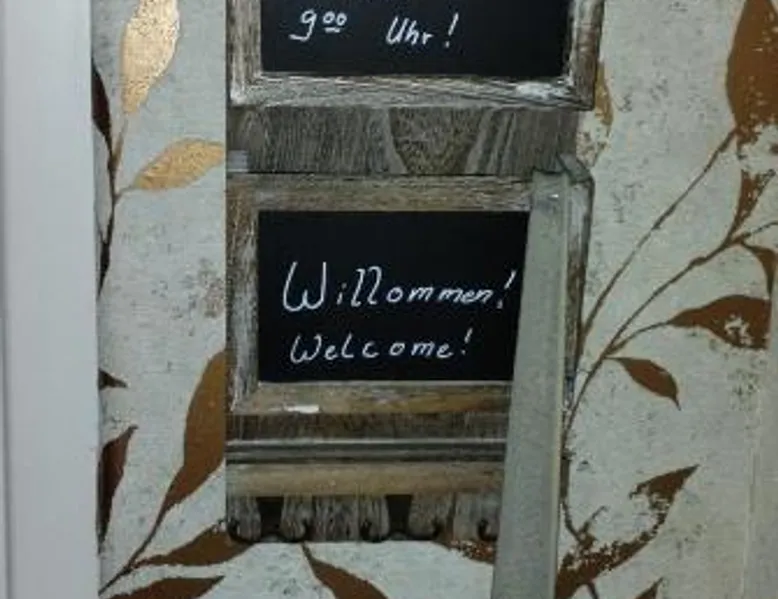 9⁰⁰ Uhr!
Willommen!
Welcome!